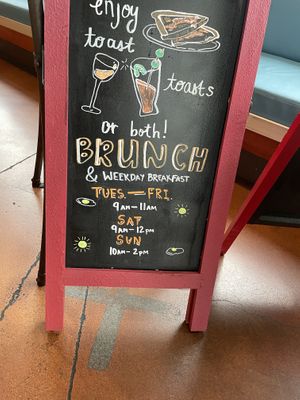 enjoy
toast
toasts
or both!
BRUNCH
& WEEKDAY BREAKFAST
TUES.—FRI.
9AM-11AM
SAT
9AM-12PM
SUN
10AM-2PM